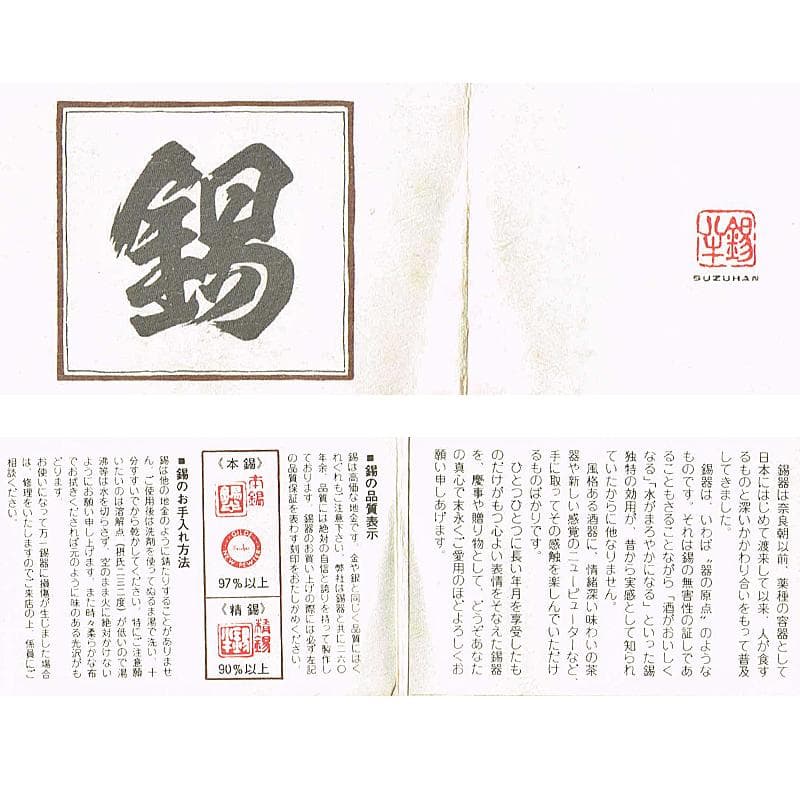 錫
半錫
SUZUHAN
錫器は奈良朝以前、薬種の容器として
日本にはじめて渡来して以来、人が食す
るものと深いかかわり合いをもって普及
してきました。
錫器は、いわば“器の原点”のような
ものです。それは錫の無害性の証しであ
ることもさることながら「酒がおいしく
なる」「水がまろやかになる」といった錫
独特の効用が、昔から実感として知られ
ていたからに他なりません。
風格ある酒器に、情緒深い味わいの茶
器や新しい感覚のニューピューターなど、
手に取ってその感触を楽しんでいただけ
るものばかりです。
ひとつひとつに長い年月を享受したも
のだけがもつ心よい表情をそなえた錫器
を、慶事や贈り物として、どうぞあなた
の真心で末永くご愛用のほどよろしくお
願い申しあげます。
■錫の品質表示
錫は高価な地金です。金や銀と同じく品質にはく
れぐれもご注意下さい。弊社は錫器と共に二六〇
年余、品質には絶対の自信と誇りを持って製作し
ております。錫器のお買い上げの際には必ず左記
の品質保証を表わす刻印をおたしかめください。
《本錫》
本錫
97%以上
《精錫》
精錫
半錫
90%以上
■錫のお手入れ方法
錫は他の地金のように錆たりすることがありませ
ん。ご使用後は洗剤を使ってぬるま湯で洗い、十
分すすいでから乾かしてください。特にご注意願
いたいのは溶解点（摂氏二三二度）が低いので湯
沸等は水を切らさず、空のまま火に絶対かけない
ようにお願い申し上げます。また時々柔らかな布
でお拭きくだされば元のように味のある光沢がも
どります。
お使いになって万一錫器に損傷が生じました場合
は、修理をいたしますのでご来店の上、係員にご
相談ください。